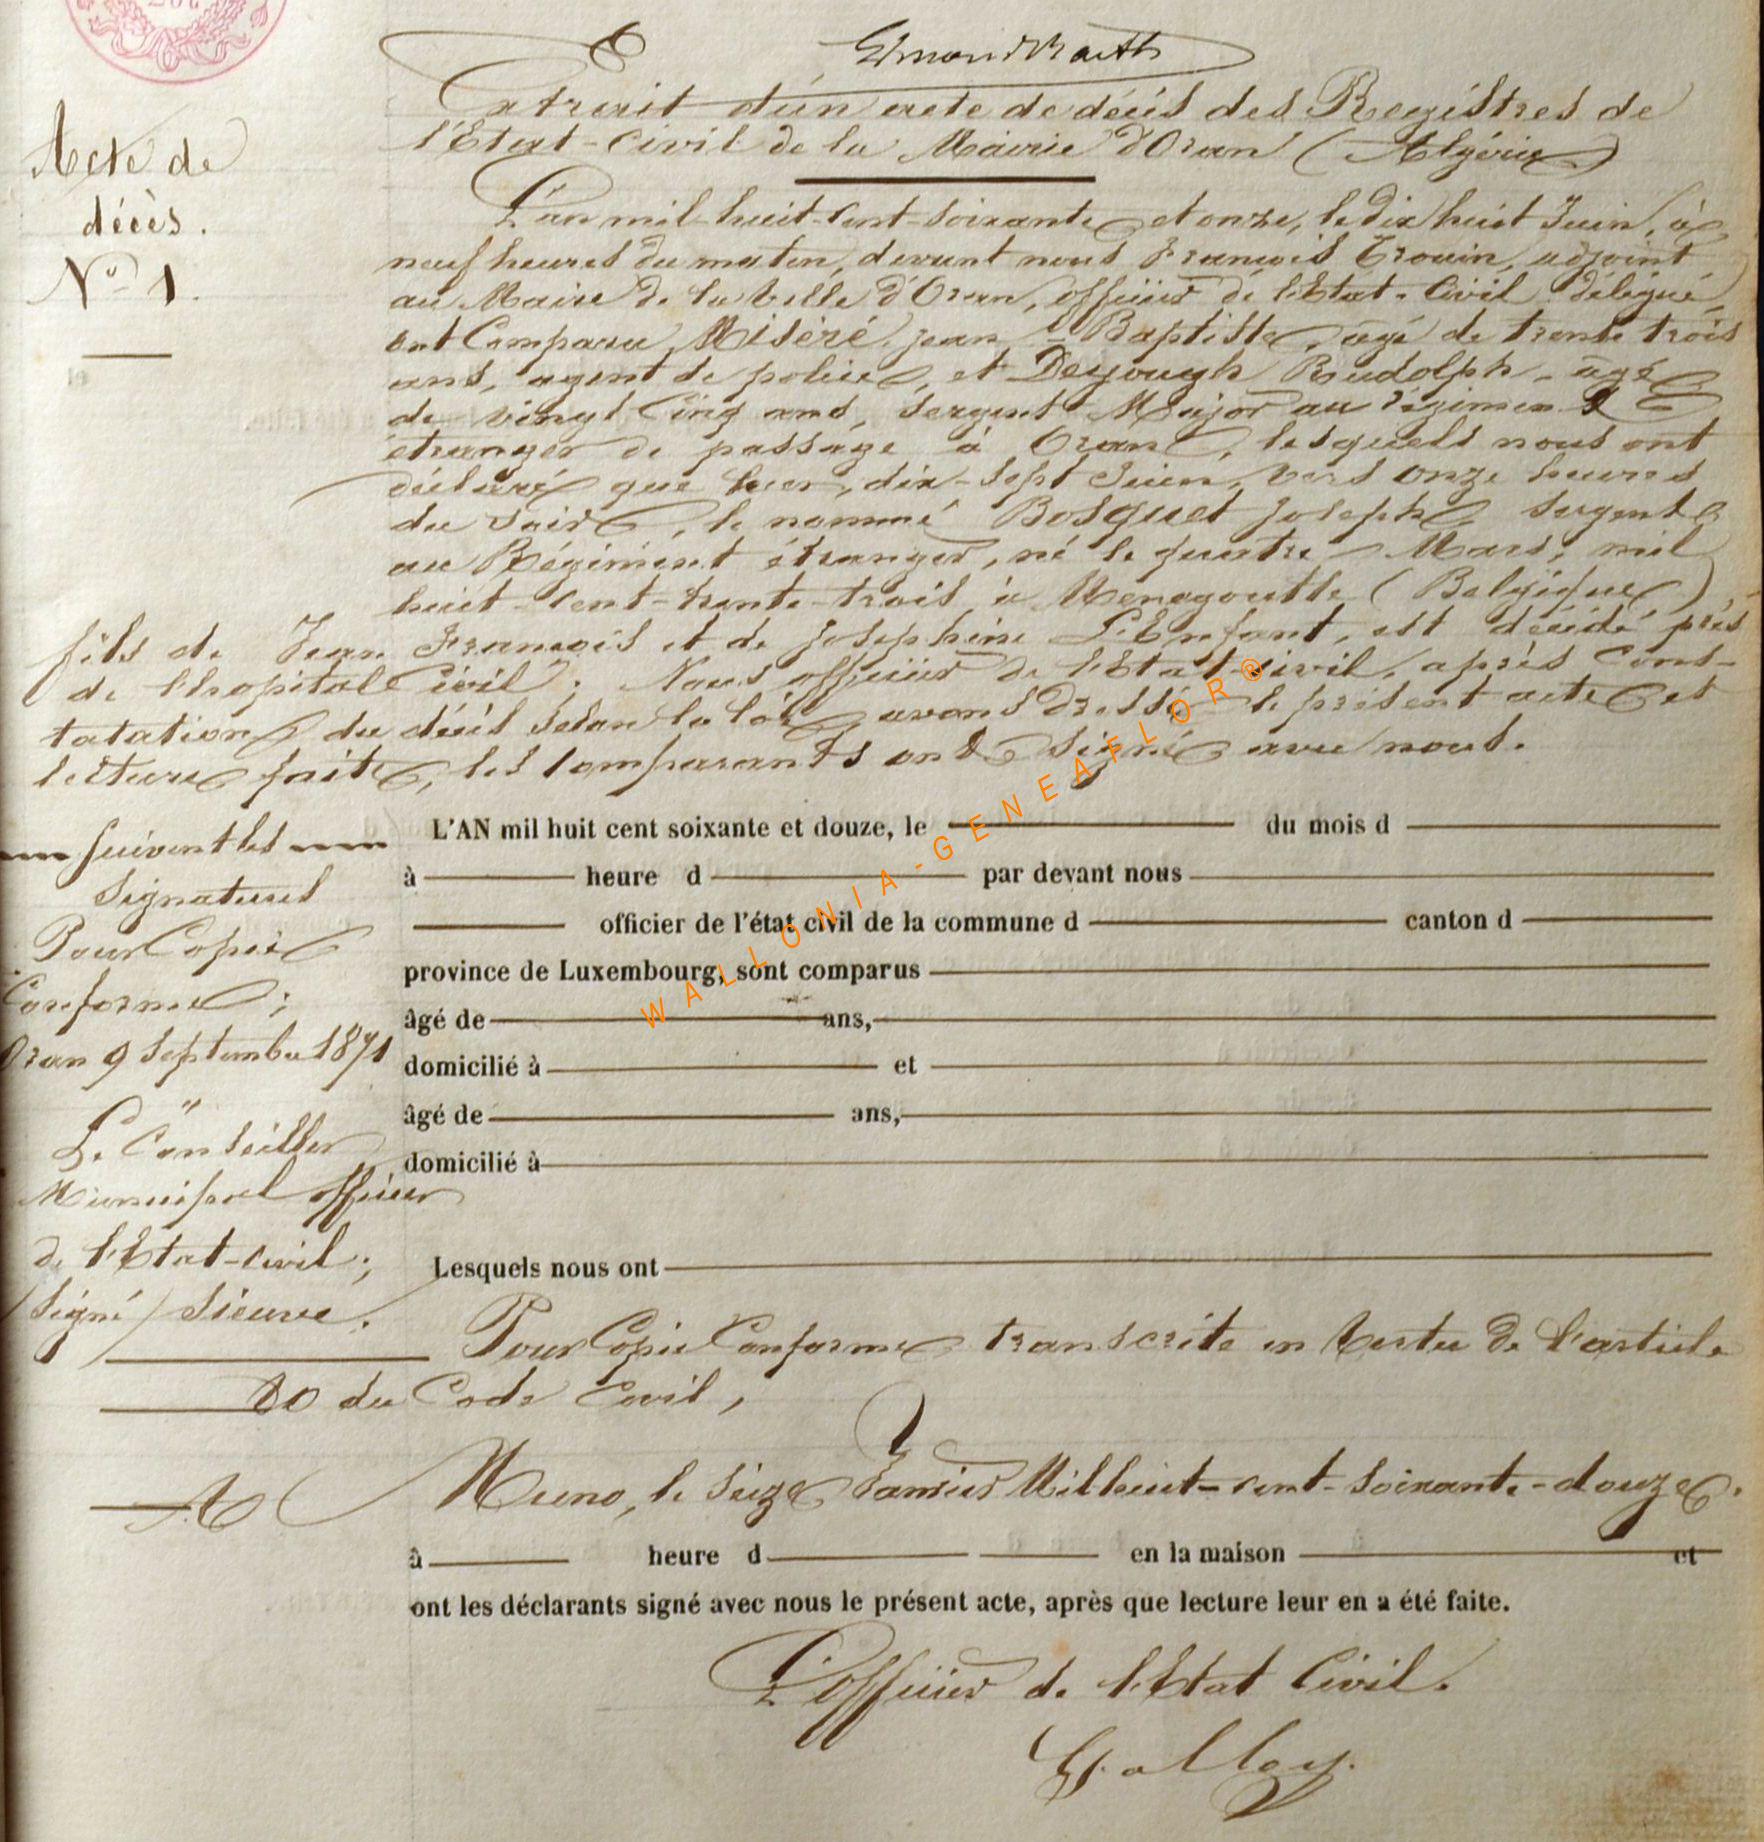 Acte de
décès.
N° 1.
Extrait d'un acte de décès des Régistres de
l'Etat-Civil de la Mairie d'Oran (Algérie)
L'an mil-huit-cent-soixante et onze, le dix huit Juin, à
neuf heures du matin, devant nous François Trouin, adjoint
au Maire de la Ville d'Oran, officier de l'Etat-Civil délégué,
ont Comparu Miséré Jean-Baptiste, âgé de trente trois
ans, agent de police, et Deyough Rudolph - âgé
de vingt Cinq ans, Sergent Major au régiment
étranger de passage à Oran, lesquels nous ont
déclaré que hier, dix-sept Juin, vers onze heures
du soir, le nommé Bosquet Joseph, Sergent
au Régiment étranger, né le quatre Mars, mil
huit-cent-trente-trois à Menogoutte (Belgique),
fils de Jean François et de Joséphine L'Enfant, est décédé près
de l'hopital Civil; Nous officier de l'Etat civil, après Cons-
tatation du décès selon la loi, avons dressé le présent acte et
lecture faite, les comparants ont signé avec nous.
Suivent les
Signatures
Pour Copie
Conforme;
Oran 9 Septembre 1871
Le Conseiller
Municipal officier
de l'Etat-civil;
(Signé) Sieuve.
L'AN mil huit cent soixante et douze, le du mois d
à heure d par devant nous
officier de l'état civil de la commune d canton d
province de Luxembourg, sont comparus
âgé de ans,
domicilié à et
âgé de ans,
domicilié à
Lesquels nous ont
Pour Copie Conforme transcrite en Vertu de l'article
80 du Code Civil,
A Muno, le Seize Janvier Mil huit-cent-soixante-douze.
à heure d en la maison et
ont les déclarants signé avec nous le présent acte, après que lecture leur en a été faite.
L'officier de l'Etat Civil.
WALLONIA-GENEAFLOR®